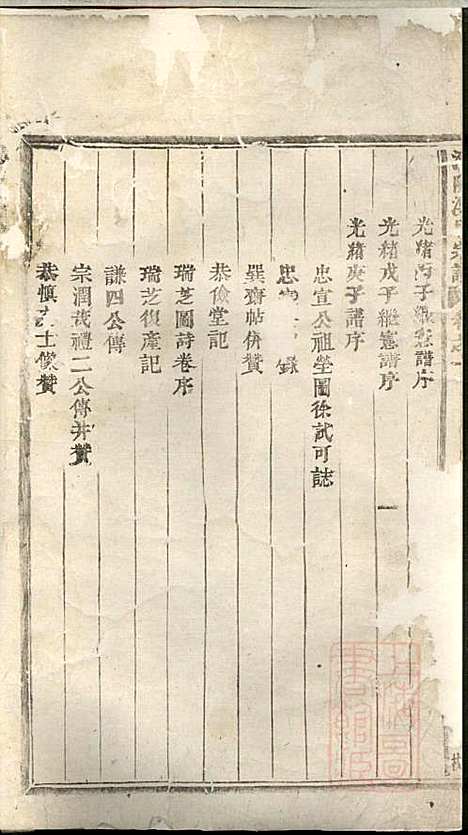 光緒丙子繼憲譜序
光緒戊子繼憲譜序
光緒庚子譜序
忠宣公祖塋圖徐試可誌
忠 錄
巽齋帖併贊
恭儉堂記
瑞芝圖詩卷序
瑞芝復產記
謙四公傳
宗潤茂禮二公傳并贊
恭慎 士像贊